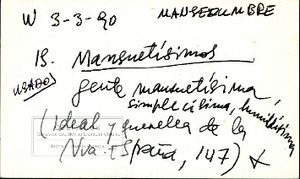 W 3-3-90 MANSEDUMBRE
IS. Mansuetísimos
USADOS
gente mansuetísima,
simplecísima, humildísima
(Ideal y querella de la
Nva España, 147)